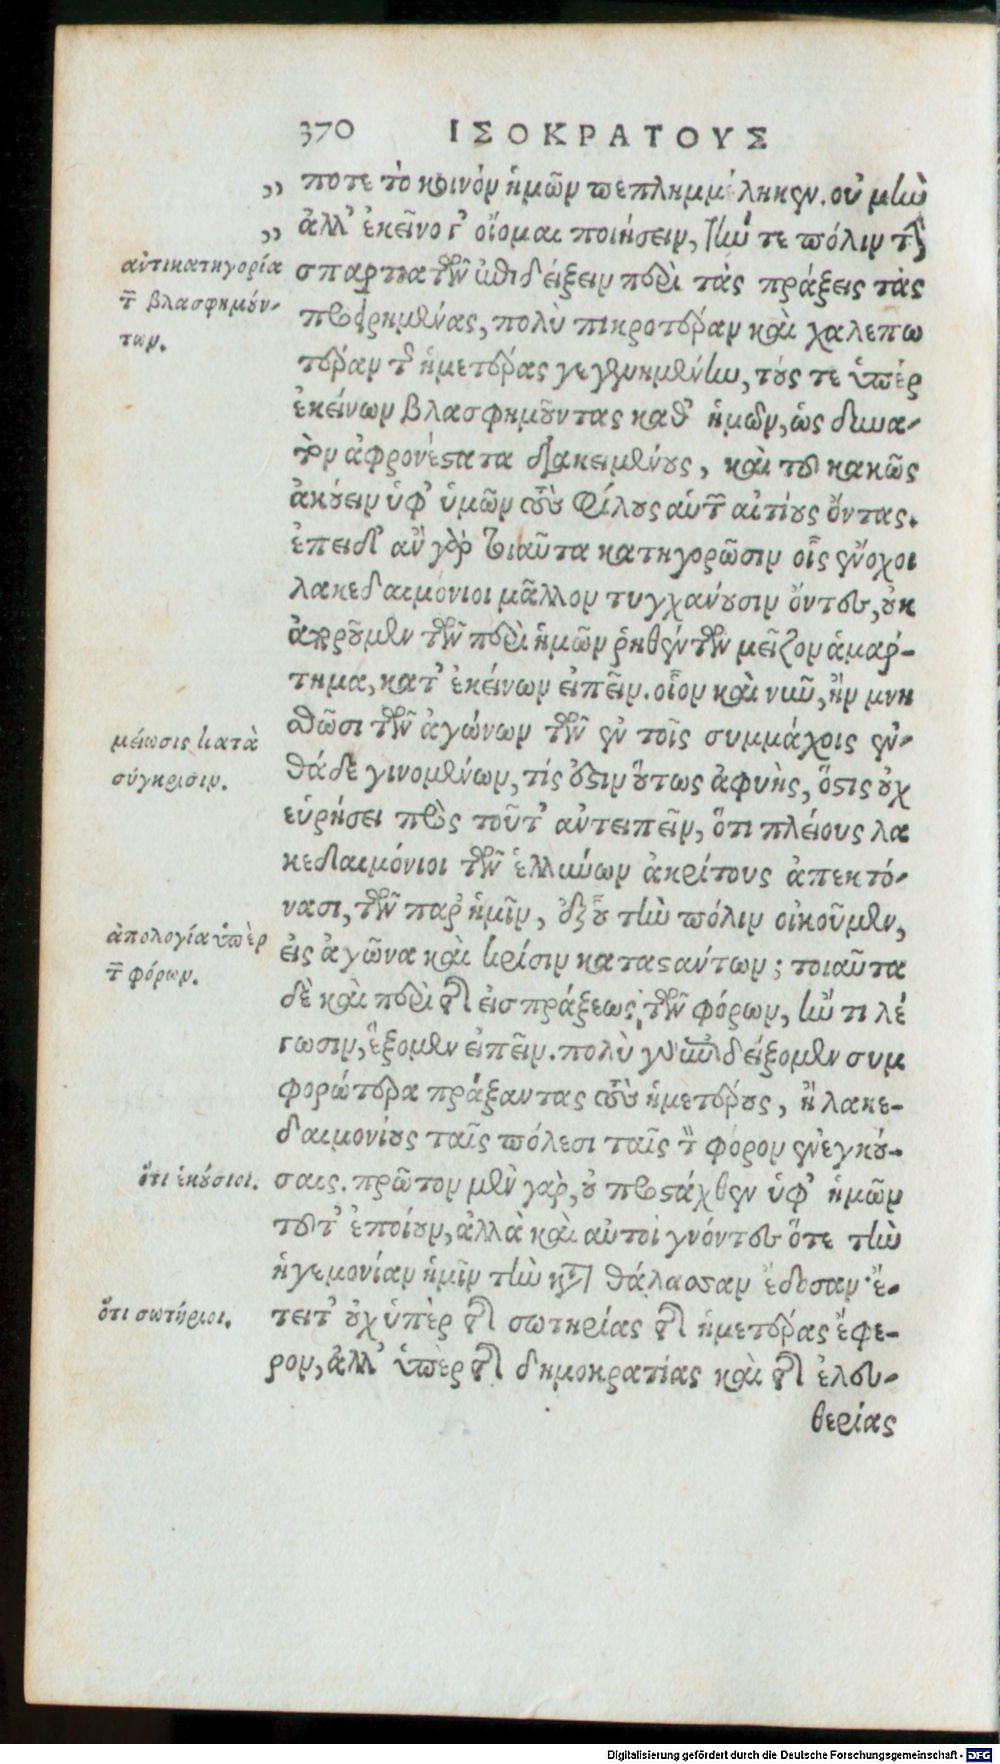 370 ΙΣΟΚΡΑΤΟΥΣ
„ ποτε τὸ κοινὸν ἡμῶν πεπλημμέληκεν. οὐ μὴν
„ ἀλλ' ἐκεῖνό γ' οἴομαι ποιήσειν, τήν τε πόλιν τῶν
ἀντικατηγορία
τῶν βλασφημούν-
των.
σπαρτιατῶν ἐπιδείξειν περὶ τὰς πράξεις τὰς
προειρημένας, πολὺ πικροτέραν καὶ χαλεπω
τέραν τῆς ἡμετέρας γεγενημένην, τούς τε ὑπὲρ
ἐκείνων βλασφημοῦντας καθ' ἡμῶν, ὡς δυνα-
τὸν ἀφρονέστατα διακειμένους, καὶ τοῦ κακῶς
ἀκούειν ὑφ' ὑμῶν τοὺς φίλους αὐτῶν αἰτίους ὄντας.
ἐπειδ' ἂν γὰρ τοιαῦτα κατηγορῶσιν οἷς ἔνοχοι
λακεδαιμόνιοι μᾶλλον τυγχάνουσιν ὄντες, οὐκ
ἀποροῦμεν τῶν περὶ ἡμῶν ῥηθέντων μεῖζον ἁμάρ-
τημα, κατ' ἐκείνων εἰπεῖν. οἷον καὶ νῦν, ἢν μνη
σθῶσι τῶν ἀγώνων τῶν ἐν τοῖς συμμάχοις ἐν-
μείωσις κατὰ
σύγκρισιν.
θάδε γινομένων, τίς ἔστιν οὕτως ἀφυὴς, ὅστις οὐχ
εὑρήσει πρὸς τοῦτ' ἀντειπεῖν, ὅτι πλείους λα
κεδαιμόνιοι τῶν ἑλλήνων ἀκρίτους ἀπεκτό-
νασι, τῶν παρ' ἡμῖν, ἐξ οὗ τὴν πόλιν οἰκοῦμεν,
ἀπολογία ὑπὲρ
τῶν φόρων.
εἰς ἀγῶνα καὶ κρίσιν καταστάντων; τοιαῦτα
δὲ καὶ περὶ τῆς εἰσπράξεως τῶν φόρων, ἤν τι λέ
γωσιν, ἕξομεν εἰπεῖν. πολὺ γὰρ ἐπιδείξομεν συμ
φορώτερα πράξαντας τοὺς ἡμετέρους, ἢ λακε-
δαιμονίους ταῖς πόλεσι ταῖς τὸν φόρον ἐνεγκού-
ὅτι ἑκούσιοι.
σαις. πρῶτον μὲν γὰρ, οὐ προσταχθὲν ὑφ' ἡμῶν
τοῦτ' ἐποίουν, ἀλλὰ καὶ αὐτοὶ γνόντες ὅτε τὴν
ἡγεμονίαν ἡμῖν τὴν κατὰ θάλασσαν ἔδοσαν· ἔ-
ὅτι σωτήριοι.
πειτ' οὐχ ὑπὲρ τῆς σωτηρίας τῆς ἡμετέρας ἔφε-
ρον, ἀλλ' ὑπὲρ τῆς δημοκρατίας καὶ τῆς ἐλευ-
θερίας
Digitalisierung gefördert durch die Deutsche Forschungsgemeinschaft - DFG